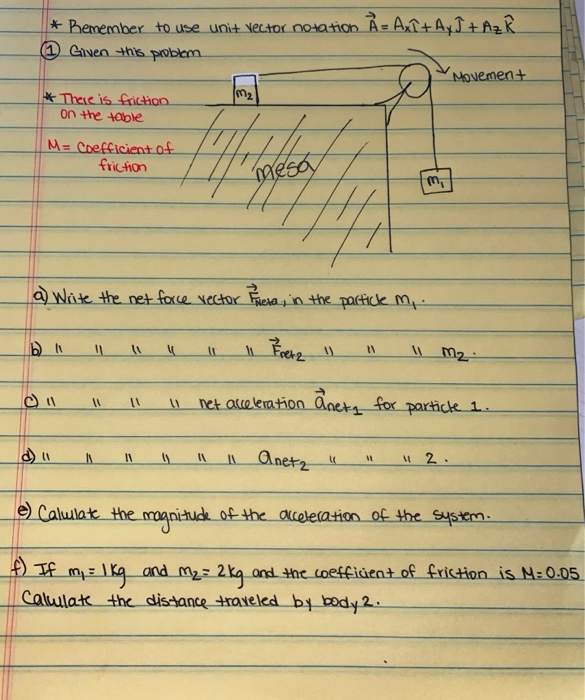 * Remember to use unit vector notation A⃗ = Axî + Ayĵ + Azk̂
① Given this problem
Movement
m2
* There is friction
on the table
M = Coefficient of
friction
mesa
m1
a) Write the net force vector F⃗neta, in the particle m1.
b) " " " " " " F⃗net2 " " " m2.
c) " " " " net acceleration a⃗net1 for particle 1.
d) " " " " " " anet2 " " " 2.
e) Calculate the magnitude of the acceleration of the system.
f) If m1 = 1kg and m2 = 2kg and the coefficient of friction is M=0.05
Calculate the distance traveled by body 2.